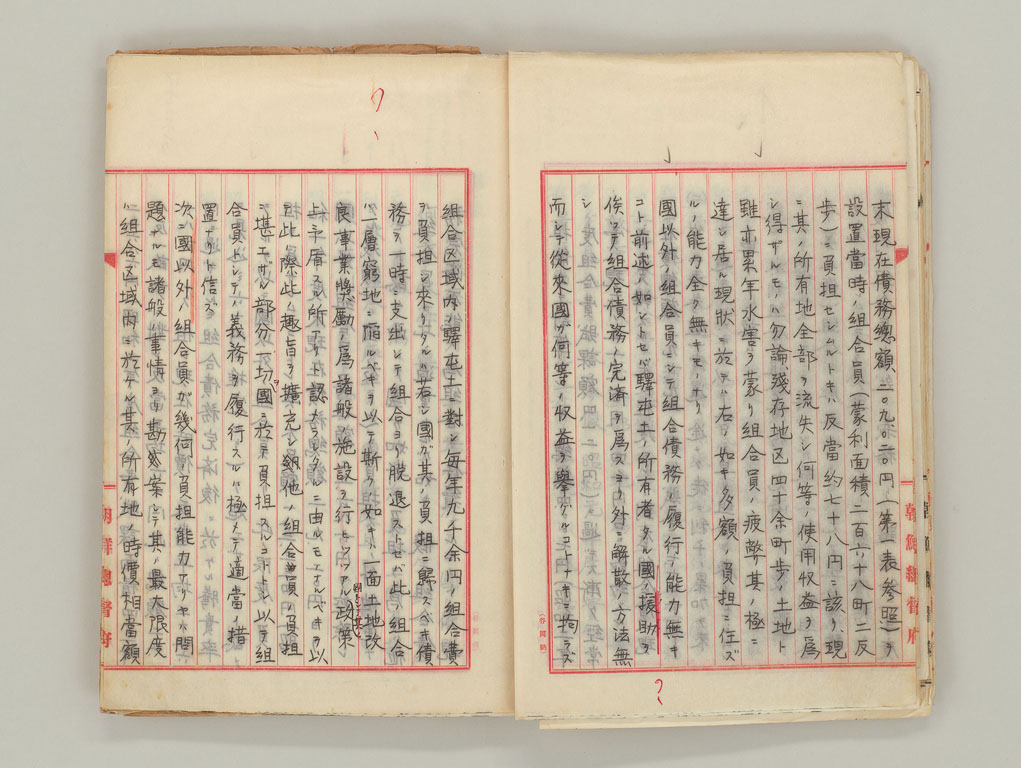 末現在債務總額二〇九、〇二〇円(第一表参照)ヲ
設置當時ノ組合員(蒙利面積二百六十八町二反
歩)ニ負担セシムルトキハ反當約七十八円ニ該リ、現
ニ其ノ所有地全部ヲ流失シ何等ノ使用收益ヲ爲
シ得ザルモノハ勿論、残存地区四十余町歩ノ土地ト
雖亦累年水害ヲ蒙リ組合員ノ疲弊其ノ極ニ
達シ居ル現状ニ於テハ右ノ如キ多額ノ負担ニ任ズ
ルノ能力全ク無キモノナリ
國以外ノ組合員ニシテ組合債務ノ履行ノ能力無キ
コト前述ノ如シトセバ驛屯土ノ所有者タル國ノ援助ヲ
俟ツテ組合債務ノ完済ヲ爲スヨリ外ニ解散ノ方法無
シ
而シテ從來國ガ何等ノ收益ヲ擧グルコトナキニ拘ラズ
組合区域内ノ驛屯土ニ對シ毎年九千余円ノ組合費
ヲ負担シ來リタルハ若シ國ガ其ノ負担ニ解スベキ債
務ヲ一時ニ支出シテ組合ヨリ脱退ストセバ此ノ組合
ハ一層窮地ニ陥ルベキヲ以テ斯クノ如キハ一面土地改
良事業奬勵ノ爲諸般ノ施設ヲ行ヒツツアル政策
上矛盾スル所アリト認メラレタルニ由ルモノナルベキヲ以
テ此ノ際此ノ趣旨ヲ擴充シ他ノ組合員ノ負担
ニ堪エザル部分一切ヲ國ニ於テ負担スルコトトシ以テ組
合員トシテノ義務ヲ履行スルハ極メテ適當ノ措
置ナリト信ズ
次ニ國以外ノ組合員ガ幾何ノ負担能力アリヤハ問
題ナルモ諸般ノ事情ヨリ勘案シテ其ノ最大限度
ハ組合区域内ニ於ケル其ノ所有地ノ時價相當額
朝鮮總督府
朝鮮總督府